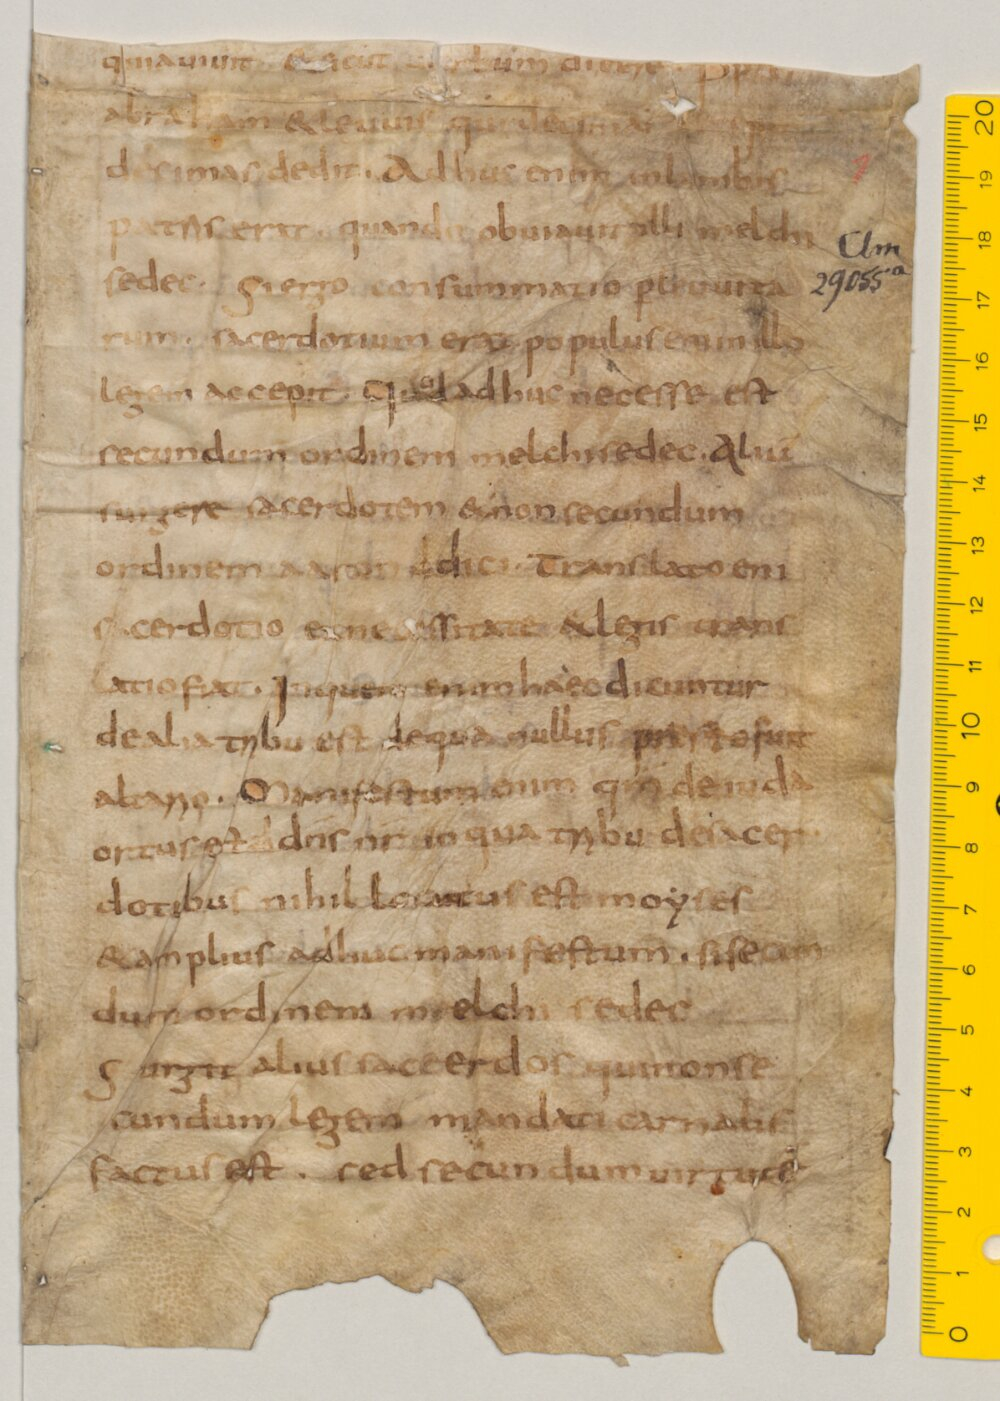 quia uiuit & ut dictum
abraham & leuuis qui decimas
decimas dedit. Adhuc enim in lumbis
patris erat quando obuiauit illi melchi
sedec. Si ergo consummatio per leuuita
rum sacerdotium erat populus enim illo
legem accepit. Quod adhuc necesse est
secundum ordinem melchisedec. Aliū
surgere sacerdotem & non secundum
ordinem aaron dici. Translato eni
sacerdotio necessitate & legis trans
latio fiat. In quem enim haec dicuntur
de alia tribu est de qua nullus presto fuit
altario. Manifestum enim qđ de iuda
ortus est dn̄s nr̄ in qua tribu de sacer
dotibus nihil locutus est moyses
& amplius adhuc manifestum. si secun
dum ordinem melchi sedec
Surgit alius saccerdos qui non se
cundum legem mandati carnalis
factus est. sed secundum uirtutē
1
Clm
29055a
20
19
18
17
16
15
14
13
12
11
10
9
8
7
6
5
4
3
2
1
0